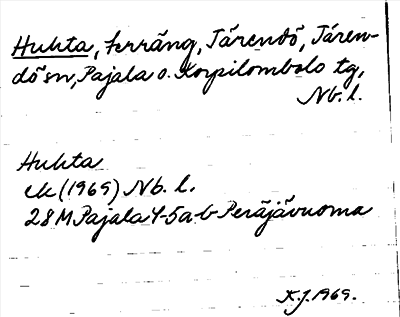 Huhta, terräng, Tärendö, Tären-
dö sn, Pajala o. Korpilombolo tg,
Nb. l.
Huhta
ek (1969) Nb. l.
28 M Pajala 4-5 a-b Peräjävuoma
K.J. 1969.